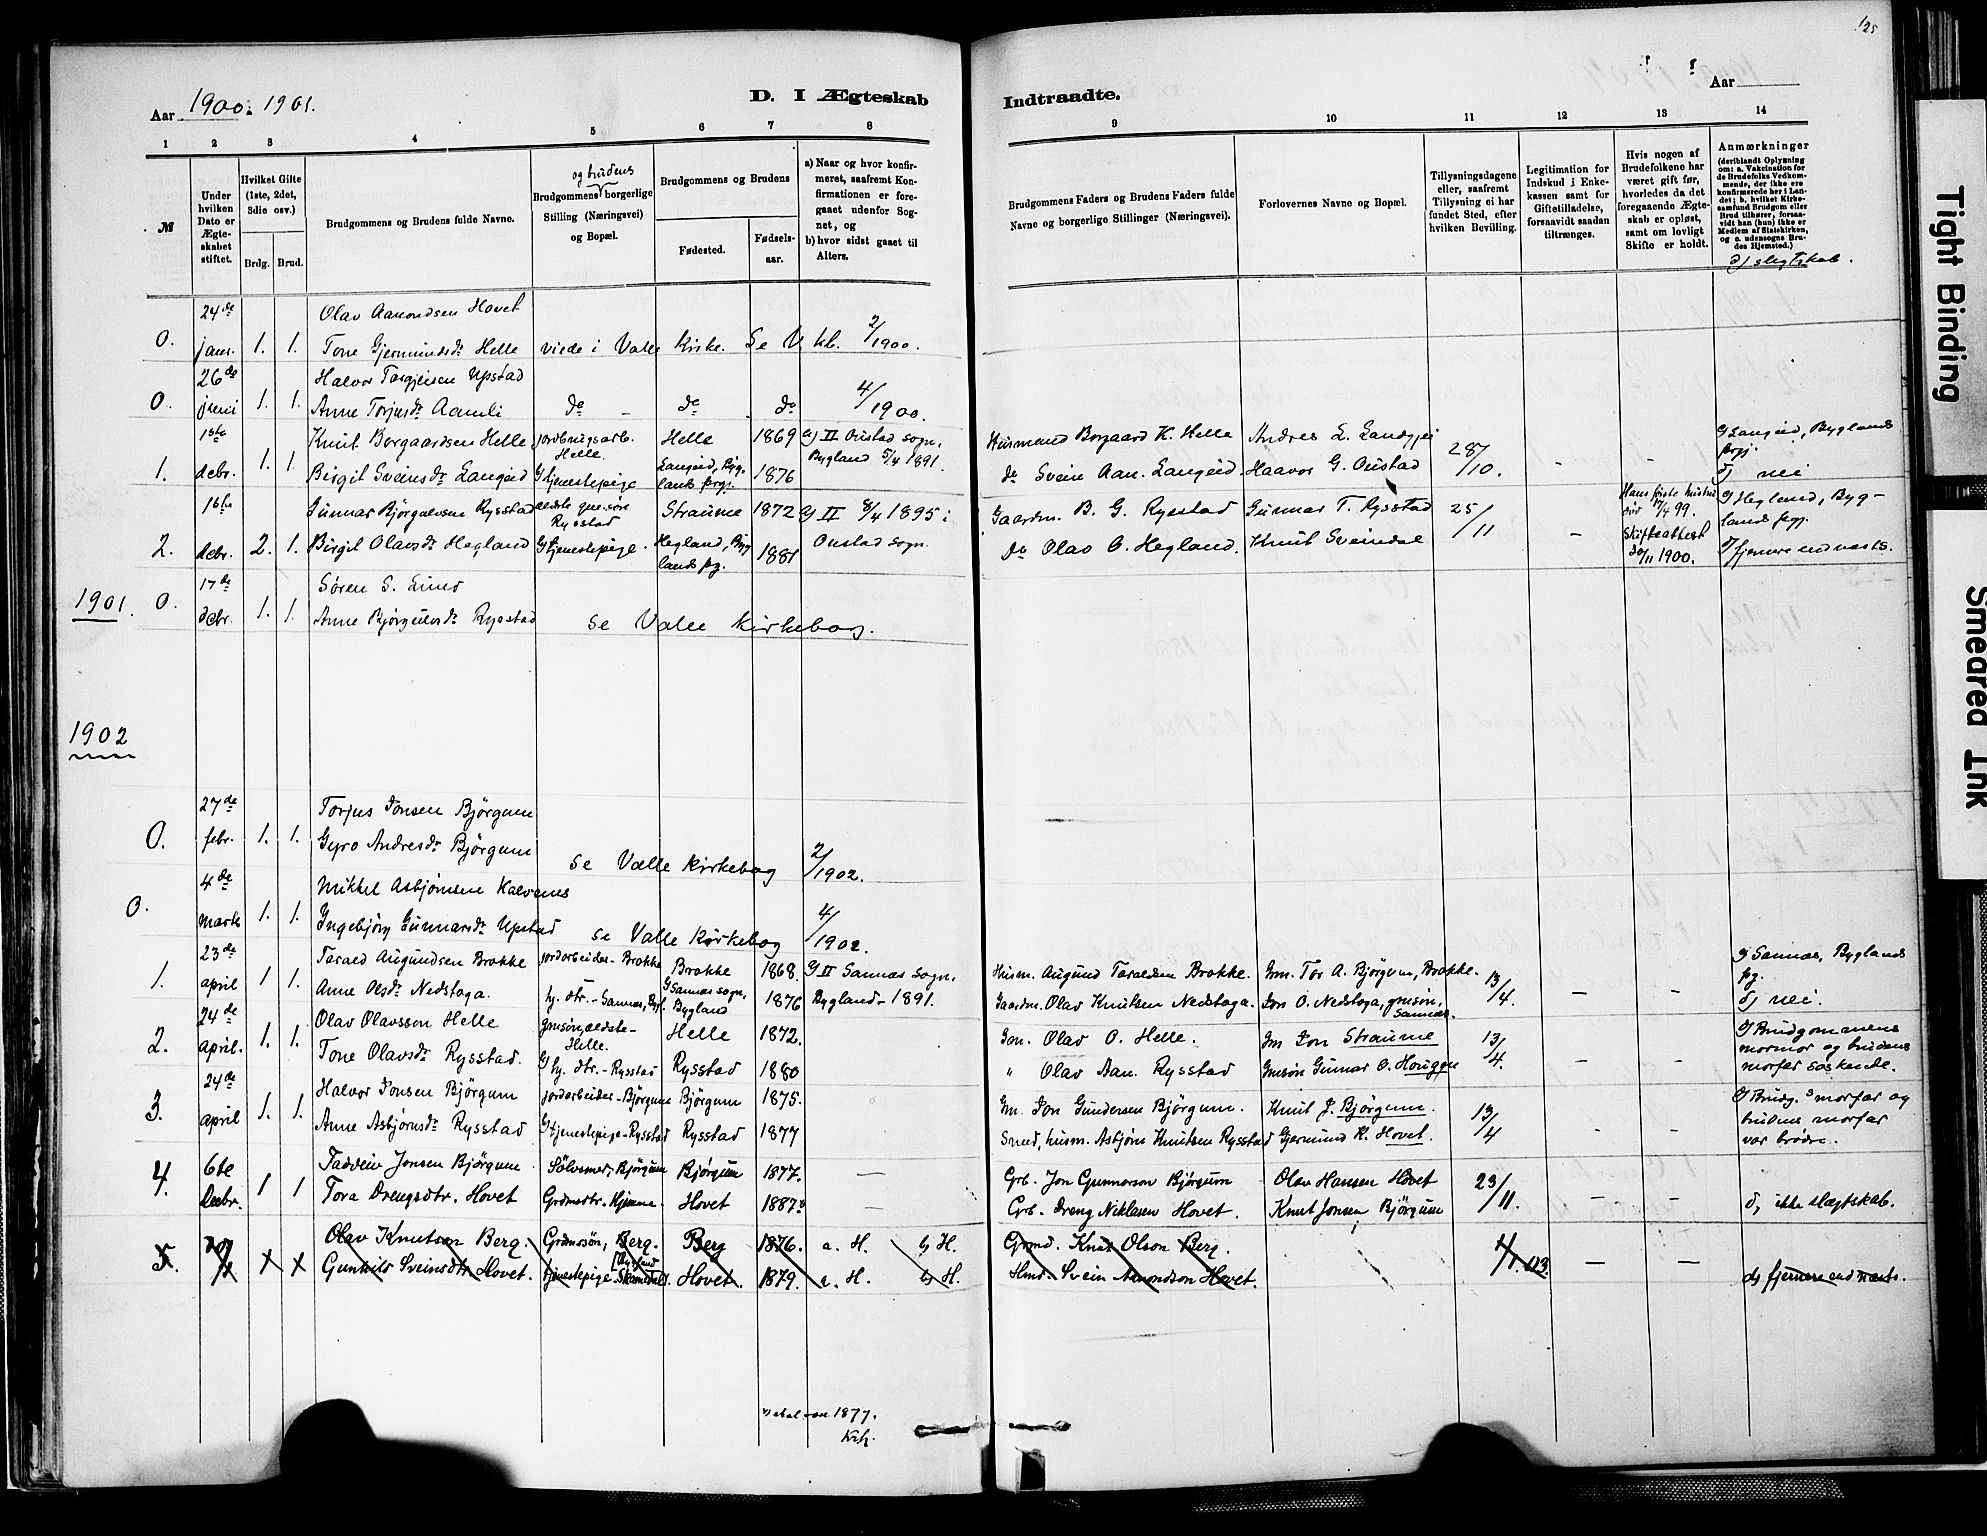 125
Aar 1900-1901.
D. I Ægteskab
Indtraadte.
Aar
1 2 3 4 5 6 7 8
9 10 11 12 13 14
№
Under hvilken Dato er Ægteskabet stiftet.
Hvilket Gifte (1ste, 2det, 3die osv.)
Brdg. Brud.
Brudgommens og Brudens fulde Navne.
og brudens
Brudgommens borgerlige Stilling (Næringsvei) og Bopæl.
Brudgommens og Brudens
Fødested.
Fødselsaar.
a) Naar og hvor konfirmeret, saafremt Konfirmationen er foregaaet udenfor Sognet, og
b) hvor sidst gaaet til Alters.
Brudgommens Faders og Brudens Faders fulde Navne og borgerlige Stillinger (Næringsvei).
Forlovernes Navne og Bopæl.
Tillysningsdagene eller, saafremt Tillysning ei har fundet Sted, efter hvilken Bevilling.
Legitimation for Indskud i Enkekassen samt for Giftetilladelse, forsaavidt saadan tiltrænges.
Hvis nogen af Brudefolkene har været gift før, hvorledes da det foregaaende Ægteskab er opløst, samt om lovligt Skifte er holdt.
Anmærkninger
(deriblandt Oplysning om: a. Vakcination for de Brudefolks Vedkommende, der ikke ere konfirmerede her i Landet; b. hvilket Kirkesamfund Brudgom eller Brud tilhører, forsaavidt han (hun) ikke er Medlem af Statskirken, og c. udensogns Brudes Hjemsted.)
d) slegtskab.
24de Olav Aanondsen Hovet
0. janr. 1. 1. Tone Gjermundsdr Helle viede i Valle Kirke. Se V kb. 2/1900.
26de Halvor Torgjeisen Upstad
0. juni 1. 1. Anne Torjusdr Aamli do - do do 4/1900.
1ste Knut Borgaardsen Helle jordbrugsarb. Helle. Helle 1869 a) II Oustad sogn, Bygland 5/4 1891. Husmand Borgaard K. Helle Andres L. Langejei 28/10.
1. debr. 1. 1. Birgit Sveinsdr Langeid tjenestepige Langeid, Byglands prgj. 1876 do Svein Aan. Langeid Haavor G. Oustad - - c) Langeid, Byglands prgj. d) nei
1ste Gunnar Bjørgulvsen Rysstad ældste gm.søn Rysstad Straume 1872 a) II 8/4 1895 i Gaardm. B. G. Rysstad Gunnar T. Rysstad 25/11
2. debr. 2. 1. Birgit Olavsdr Hegland tjenestepige. Hegland, Byglands pg. 1881 Oustad sogn. do Olav O. Hegland. Knut Sveindal - Hans første hustru død 17/4 99. Skifteattest 30/11 1900. c) Hegland, Byglands pgj. d) fjernere end næsts.
1901.
17de Søren S. Lund
0. debr. 1. 1. Anne Bjørgulvsdr Rysstad se Valle kirkebog.
1902
27de Torjus Jonsen Bjørgum
0. febr. 1. 1. Gyro Andresdr Bjørgum se Valle kirkebog 2/1902.
4de Mikkel Asbjørnsen Kalvenes
0. marts 1. 1. Ingebjørg Gunnarsdr Upstad se Valle kirkebog 4/1902.
23de Tarald Augundsen Brokke jordarbeider - Brokke Brokke 1868. a) II Sannæs sogn, Husm. Augund Taraldsen Brokke. Gm. Tor A. Bjørgum, Brokke. 13/4.
1. april 1 1. Anne Olsdr Nedstoga. hj. dtr. - Sannæs, Bygl. Sannæs sogn, Bygland 1876 Bygland - 1891. Gaardm. Olav Knutsen Nedstoga. Jon O. Nedstoga, gmsøn, Sannæs. - - c) Sannæs, Byglands pg. d) nei.
24de Olav Olavsson Helle gmsøn, ældste - Helle. Helle 1872. Gm. Olav O. Helle. Gm Jon Straume 13/4.
2. april. 1. 1. Tone Olavsdr Rysstad. hj. dtr. - Rysstad Rysstad 1880 " Olav Aan. Rysstad gmsøn Gunnar O. Hougen - - d) Brudgommens mormor og brudens morfar søskende.
24de Halvor Jonsen Bjørgum jordarbeider - Bjørgum Bjørgum 1875. Gm. Jon Gundersen Bjørgum. Knut J. Bjørgum. 13/4
3. april 1. 1. Anne Asbjørnsdr Rysstad tjenestepige - Rysstad Rysstad 1877 Smed, husm. Asbjørn Knutsen Rysstad Gjermund K. Hovet. - - d) Brudg.s morfar og brudens morfar var brødre.
6te Tadveiv Jonsen Bjørgum. Sølvsmed, Bjørgum Bjørgum 1877. - Grb. Jon Gunnarson Bjørgum Olav Hansen Hovet 23/11.
4. Decbr. 1 1 Tora Drengsdtr. Hovet Grdmsdtr. Hjemme Hovet 1887 - Grb. Dreng Niklasen Hovet. Knut Jonsen Bjørgum - - d, ikke slægtskab.
Olav Knutson Berg. Grdmssøn, Berg. Berg 1876. a. H. b) H. Grmd. Knut Olson Berg.
5. Gunhild Sveinsdtr Hovet. tjenestepige Hovet. 1879. a. H. b) H. Hmd. Svein Aanondson Hovet. - - d) fjernere end næsts.
1877.